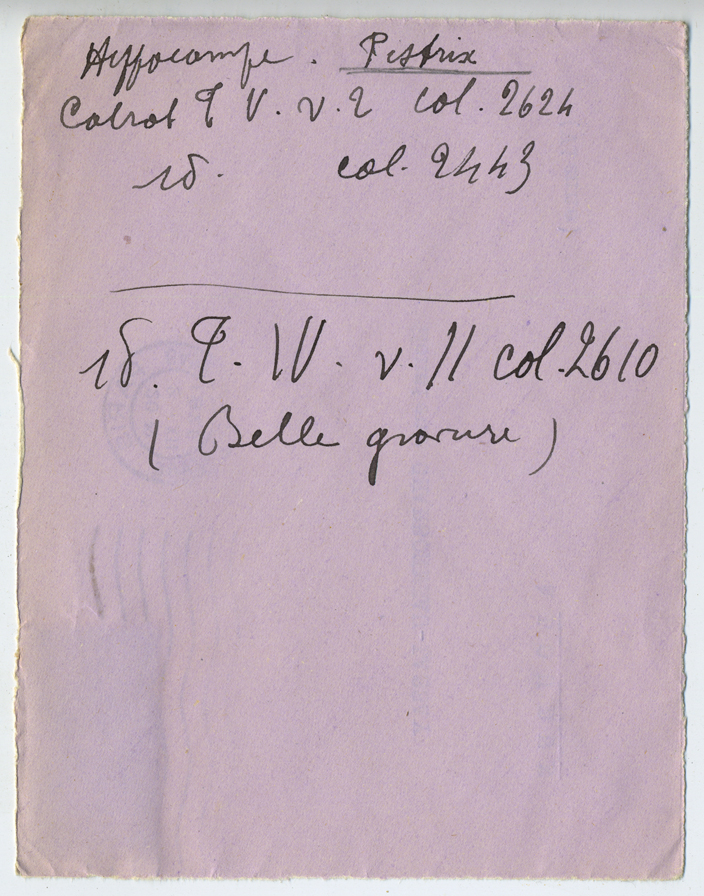 Hippocampe. Pistrix
Cabrol T V. v. 2 col. 2624
id. col. 2443
id. T. IV. v. II col. 2610
(Belle gravure)